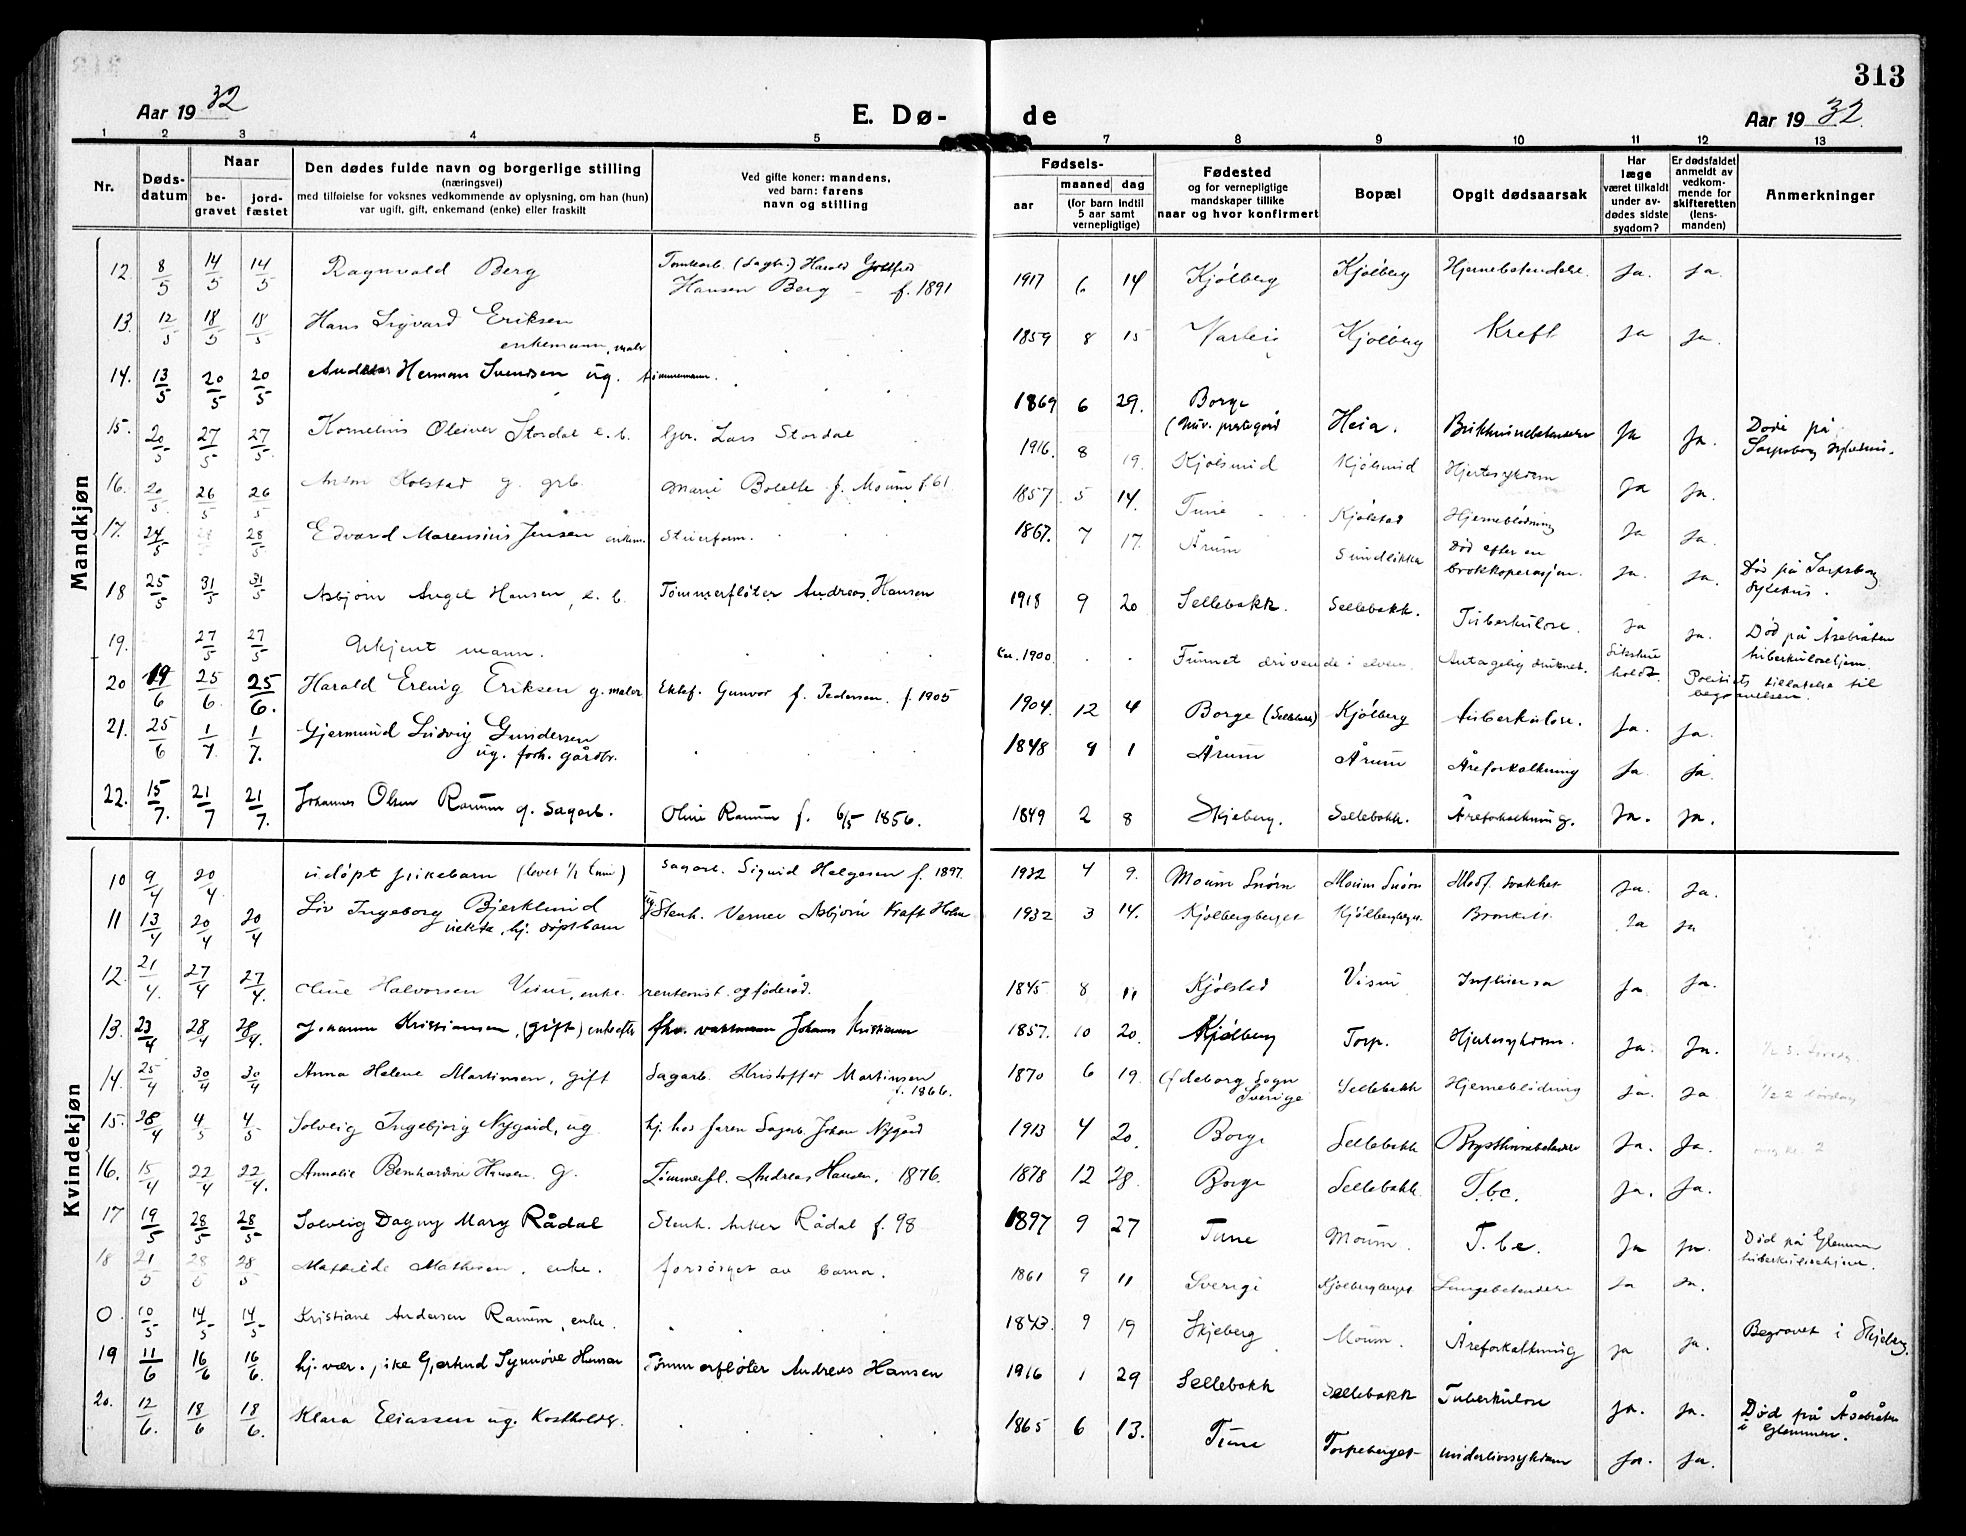 313
Aar 1932
E. Dø-
de
Aar 1932
1 2 3 4 5 7 8 9 10 11 12 13
Nr.
Døds-
datum
Naar
be-
gravet
jord-
fæstet
Den dødes fulde navn og borgerlige stilling
(næringsvei)
med tilføielse for voksnes vedkommende av oplysning, om han (hun)
var ugift, gift, enkemand (enke) eller fraskilt
Ved gifte koner: mandens,
ved barn: farens
navn og stilling
Fødsels-
aar
maaned dag
(for barn indtil
5 aar samt
vernepligtige)
Fødested
og for vernepligtige
mandskaper tillike
naar og hvor konfirmert
Bopæl
Opgit dødsaarsak
Har
læge
været tilkaldt
under av-
dødes sidste
sygdom?
Er dødsfaldet
anmeldt av
vedkom-
mende for
skifteretten
(lens-
manden)
Anmerkninger
Mandkjøn
12. 8/5 14/5 14/5 Ragnvald Berg Tomtearb. (Sagbr.) Harald Gottfred Hansen Berg - f. 1891 1917 6 14 Kjølberg Kjølberg Hjernebetendelse. Ja. Ja.
13. 12/5 18/5 18/5 Hans Sigvard Eriksen enkemann, maler 1859 8 15 Varteig Kjølberg Kreft Ja Ja.
14. 13/5 20/5 20/5 Andreas Herman Svendsen ug. tømmermann. 1869 6 29. Borge Heia. Brikhinnebetendelse Ja Ja. Døde på Sarpsborg sykehus.
15. 20/5 27/5 27/5 Kornelius Oleiver Stordal e. b. Gbr. Lars Stordal 1916. 8 19. Kjølsund Kjølsund Hjertesykdom Ja Ja.
16. 20/5 26/5 26/5 Anton Kolstad g. grb. Marie Bolette f. Moum f. 61 1857. 5 14. Tune Kjølstad Hjerneblødning Ja Ja.
17. 24/5 28/5 Edvard Marensius Jensen enkem. Stuerform. 1867. 7 17. Årum Sundløkka Død efter en brokkoperasjon. Ja. Ja. Død på Sarpsborg sykehus.
18 25/5 31/5 31/5 Asbjørn Angel Hansen, e. b. Tømmerfløter Andreas Hansen 1918 9 20 Sellebakk. Sellebakk. Tuberkulose. Ja Ja. Død på Åsebråten tuberkulosehjem.
19. 27/5 27/5 Ukjent mann. Ca. 1900 Funnet drivende i elven. Antagelig druknet. Likskue holdt. Politiets tillatelse til begravelsen
20 19/6 25/6. 25/6. Harald Erling Eriksen g. maler Ektef. Gunvor f. Pedersen. f. 1905 1904. 12 4 Borge (Sellebakk) Kjølberg tuberkulose. Ja. Ja.
21. 25/6 1/7. 1/7. Gjermund Ludvig Gundersen ug. forh. gårdbr. 1848 9 1 Årum Årum Åreforkalkning Ja. Ja.
22. 15/7. 21/7 21/7. Johannes Olsen Ramum g. Sagarb. Oline Ramum f. 6/5 1856. 1849 2 8 Skjeberg. Sellebakk. Åreforkalkning. Ja. Ja.
Kvindekjøn
10 9/4 20/4. udøpt pikebarn (levet 1/2 time) Sagarb. Sigurd Helgesen f. 1897. 1932 4 9. Moum Snørn Moum Snørn Medf. svakhet Ja. Ja.
11 13/4 20/4 20/4 Liv Ingeborg Bjerklund uekte, hj. døpt barn Stenh. Verner Asbjørn Kraft Holm 1932 3 14. Kjølbergberget Kjølbergberget. Bronkitt. Ja Ja
12. 21/4. 27/4 27/4. Oline Halvorsen Visur, enke. rentenist. og føderåd. 1845 8 11 Kjølstad Visur Influensa Ja. Ja.
13. 23/4 28/4 28/4. Johanne Kristiansen, (gift) enke efter fhv. vaktmann Johans Kristiansen 1857. 10 20. Kjølberg Torp. Hjertesykdom. Ja. Ja.
14. 25/4 30/4 30/4 Anna Helene Martinsen, gift Sagarb. Kristoffer Martinsen f. 1866. 1870 6 19. Sogn Sverige Sellebakk Hjerneblødning Ja. Ja
15. 28/4 4/5 4/5 Solveig Ingebjørg Nygård, ug. hj. hos faren Sagarb. Johan Nygård 1913 4 20. Borge Sellebakk Brysthinnebetendelse Ja. Ja.
16. 15/4 22/4 22/4. Annalie Bernhardine Hansen. g. Tømmerfl. Andreas Hansen. 1876. 1878 12 28. Borge Sellebakk T.b.c. Ja. Ja.
17 19/5 28/5 28/5 Solveig Dagny Mary Rådal Stenh. Anker Rådal f. 98 1897 9 27 Tune Moum. T.b.c. Ja Ja. Død på Glemmen tuberkulosehjem.
18 21/5 28/5 28/5 Mathilde Mathisen. enke. forsørget av barna. 1861 9 11 Sverige Kjølbergberget Lungebetendelse Ja Ja.
0. 10/5 14/5 14/5 Kristiane Andersen Ramum, enke. 1843. 9 19 Skjeberg Moum. Åreforkalkning Ja Ja. Begravet i Skjeberg.
19 11/6 16/6 16/6. hj.vær. pike Gjertrud Synnøve Hansen Tømmerfløter Andreas Hansen 1916 1 29 Sellebakk Sellebakk Tuberkulose Ja. Ja.
20. 12/6. 18/6 18/6. Klara Eliassen ug. Kostholds. 1865 6 13. Tune Torpeberget underlivssykdom Ja. Ja. Død på Åsebråten i Glemmen.